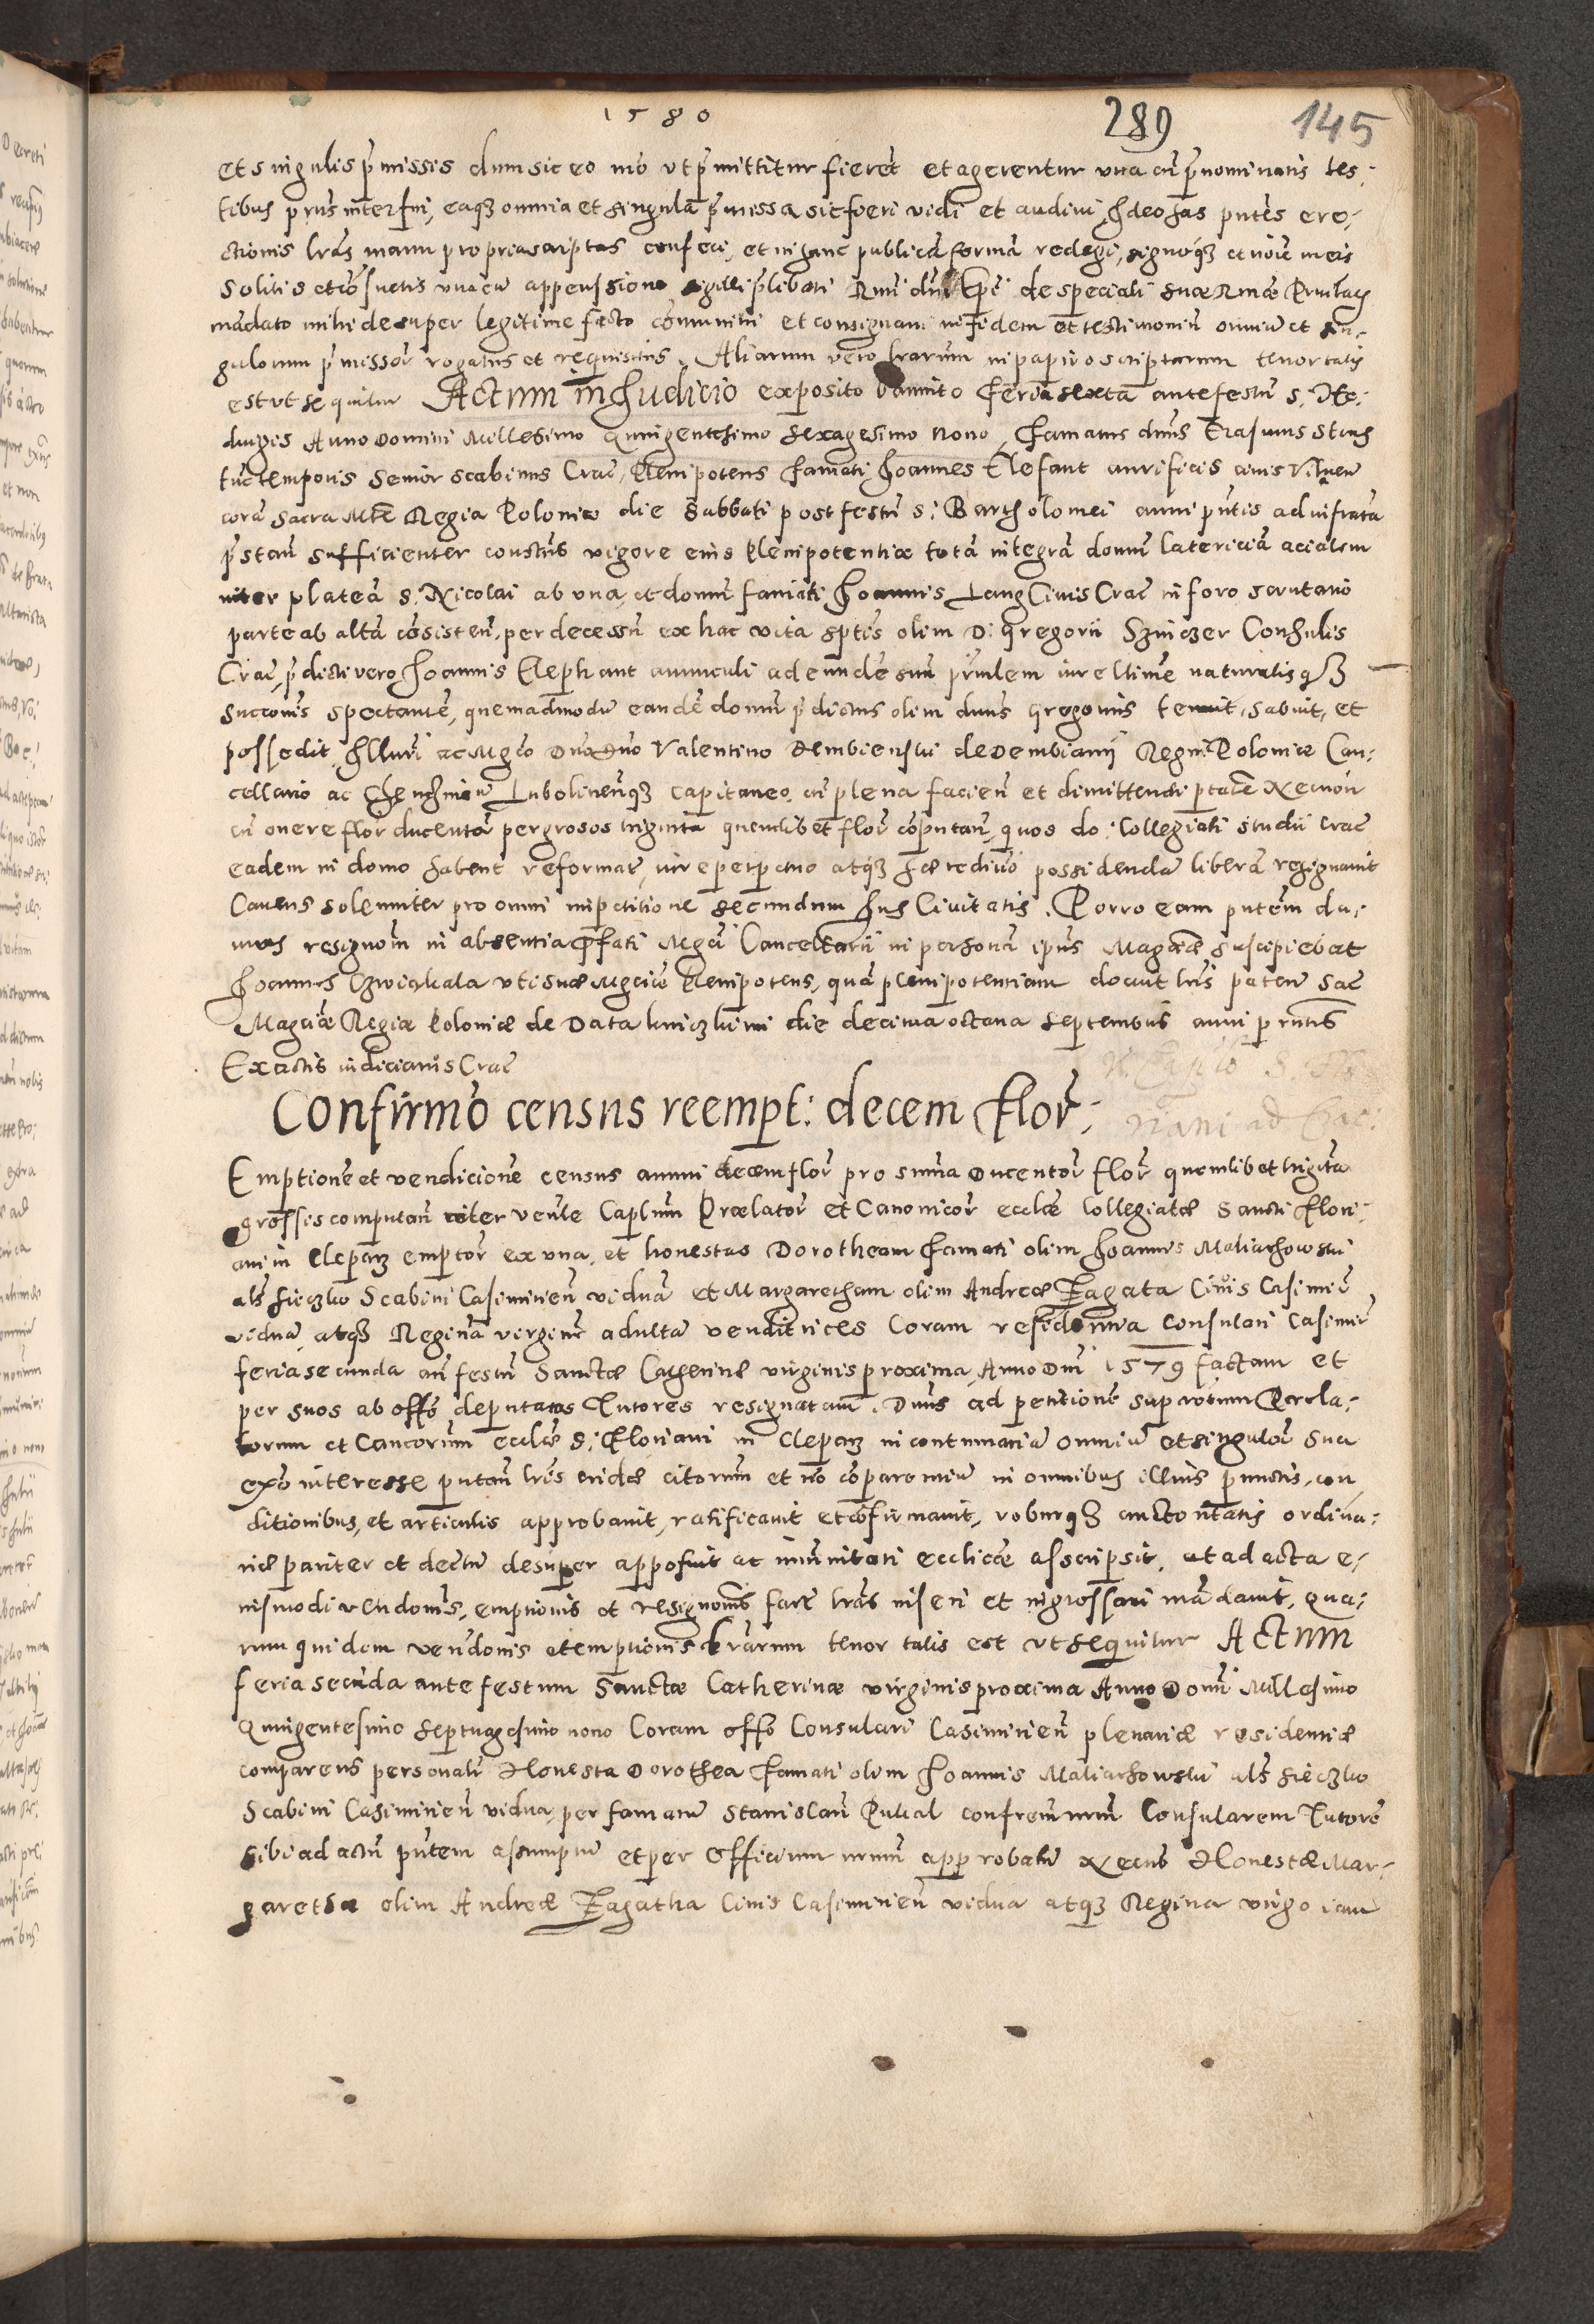 1580
289 145
et singulis p̃missis dum sic eo mõ vt p̃mittitur fierẽt et agerentur vna cũ p̃nominatis tes-
tibus p̃ns interfui, eaq3 omnia et singula p̃missa sic fieri vidi et audiui, Ideo has pñtes ere-
ctionis lr̃as manu propria scriptas confeci, et in hanc publicã formã redegi, signoq3 et noĩe meis
solitis et cõsuetis vna cũ appensione sigilli p̃libati Rm̃i dñi Ep̃i de speciali suae Rmae
mãdato mihi desuper legitime facto cõmuniui et consignaui in fidem et testimoniũ omniũ et sin-
gulorum p̃missor̃ rogatus et requisitus. Aliarum vero lr̃arum in papiro scriptarum tenor talis
est vt sequitur Actum in Iudicio exposito bannito feria sexta ante festũ S. He-
duigis Anno Domini Millesimo quingentesimo sexagesimo nono, famatus dñus Erasmus
tũc temporis Senior scabinus Crac̃, Plenipotens famati Joannes Elefant aurificis ciuis Vilnen̄
corã Sacra Mte Regia Poloniae die Sabbati post festũ S. Bartholomei anni pñtis ad infrata
p̃stan̄ sufficienter constitũs vigore eius Plenipotentiae totã integrã domũ latericiã acialem
inter plateã S. Nicolai ab vna, et domũ famati Joannis Lang Ciuis Crac̃ in foro scrutario
parte ab altã cõsisten̄, per decessũ ex hac vita sp̃tis olim D. Gregorii Szniczer Consulis
Crac̃, p̃dicti vero Joannis Elephant auunculi ad eundẽ suũ iure ltime naturalisq3
succonis spectantẽ, quemadmodũ eandẽ domũ p̃dictus olim dñus Gregorius tenuit, habuit, et
possedit, Illuri ac Mgco Dño Dño Valentino Dembienski de Dembiani Regni Poloniae Can-
cellario ac Chencinien̄ Lublinenq3 Capitaneo, cũ plena facien̄ et dimittendi ptate
cũ onere flor̃ ducentor̃ per grosos triginta quemlibet flor̃ cõputan̄, quos do. Collegiati studii Crac̃
eadem in domo habent reformat, iure perpetuo atq3 haereditario possidendã liberã resignauit
Cauens solenniter pro omni impetitione secundum Ius Ciuitatis. Porro eam pñtem do-
mus resignom̃ in absentia p̃fati Mgci Cancellarii in personã ipsius Magciae suscipiebat
Joannes Czwiakala vti suae Mgciae Plenipotens, quã plenipotentiam docuit lr̃is paten̄ Sac̃
Magciae Regiae Poloniae de Data die decima octaua Septembris anni p̃ntis
Ex actis iudiciariis Crac̃
Confirmõ census reempt: decem flor̃:
Emptionẽ et vendicionẽ census annui decem flor̃ pro sum̃a ducentor̃ flor̃ quemlibet trigĩta
grossis computan̄ inter venle Caplum Praelator̃ et Canonicor̃ eccl̃ae Collegiatae Sancti Flori-
ani in Clepar3 emptor̃ ex vna, et honestas Dorotheam famati olim Joannis Maliachowski
als Scabini Casimirien̄ viduã et Margaretham olim Andreae Zagata Ciuis Casimir̃
viduã, atq3 Reginã virginẽ adultã venditrices Coram residentia consulari Casimir̃
feria secunda an̄ festũ Sanctae Catherinae virginis proxima, Anno Dñi 1579 factam et
per suos ab offõ deputatos Tutores resignatam. Dñus ad petitionẽ sup̃rorum Praela-
torum et Cancorum eccl̃ae S. Floriani in Clepar3 in contumatiã omniũ et singulor̃ sua
exõ interesse putan̄ lr̃is citorum et nõ cõparentiũ in omnibus illius punctis, con
ditionibus, et articulis approbauit, ratificauit et cõfirmauit, roburq3 auctoritatis ordina-
riae pariter et dectũ desuper apposuit ac imũnitati eccl̃icae asscripsit, et ad acta e-
iusmodi vendonis, emptionis et resignonis fact̃ lr̃as inseri et ingrossari mãdauit, qua-
rum quidem vendonis et emptionis lr̃arum tenor talis est vt sequitur Actum
feria secũda ante festum Sanctae Catherinae virginis proxima Anno Domĩ Millesimo
Quingentesimo septuagesimo nono Coram offõ Consulari Casimirien̄ plenariae residentiae
comparens personalr̃ Honesta Dorothea famati olim Joannis Maliachowski als
Scabini Casimirien̄ vidua, per famatũ Stanislaũ Pukal confrem̃ nr̃um Consularem Tutorẽ
sibi ad actũ pñtem assumptũ et per Officium nr̃um approbatũ necnõ Honestae Mar-
garetha olim Andreae Zagatha Ciuis Casimirien̄ vidua atq3 Regina virgo iam